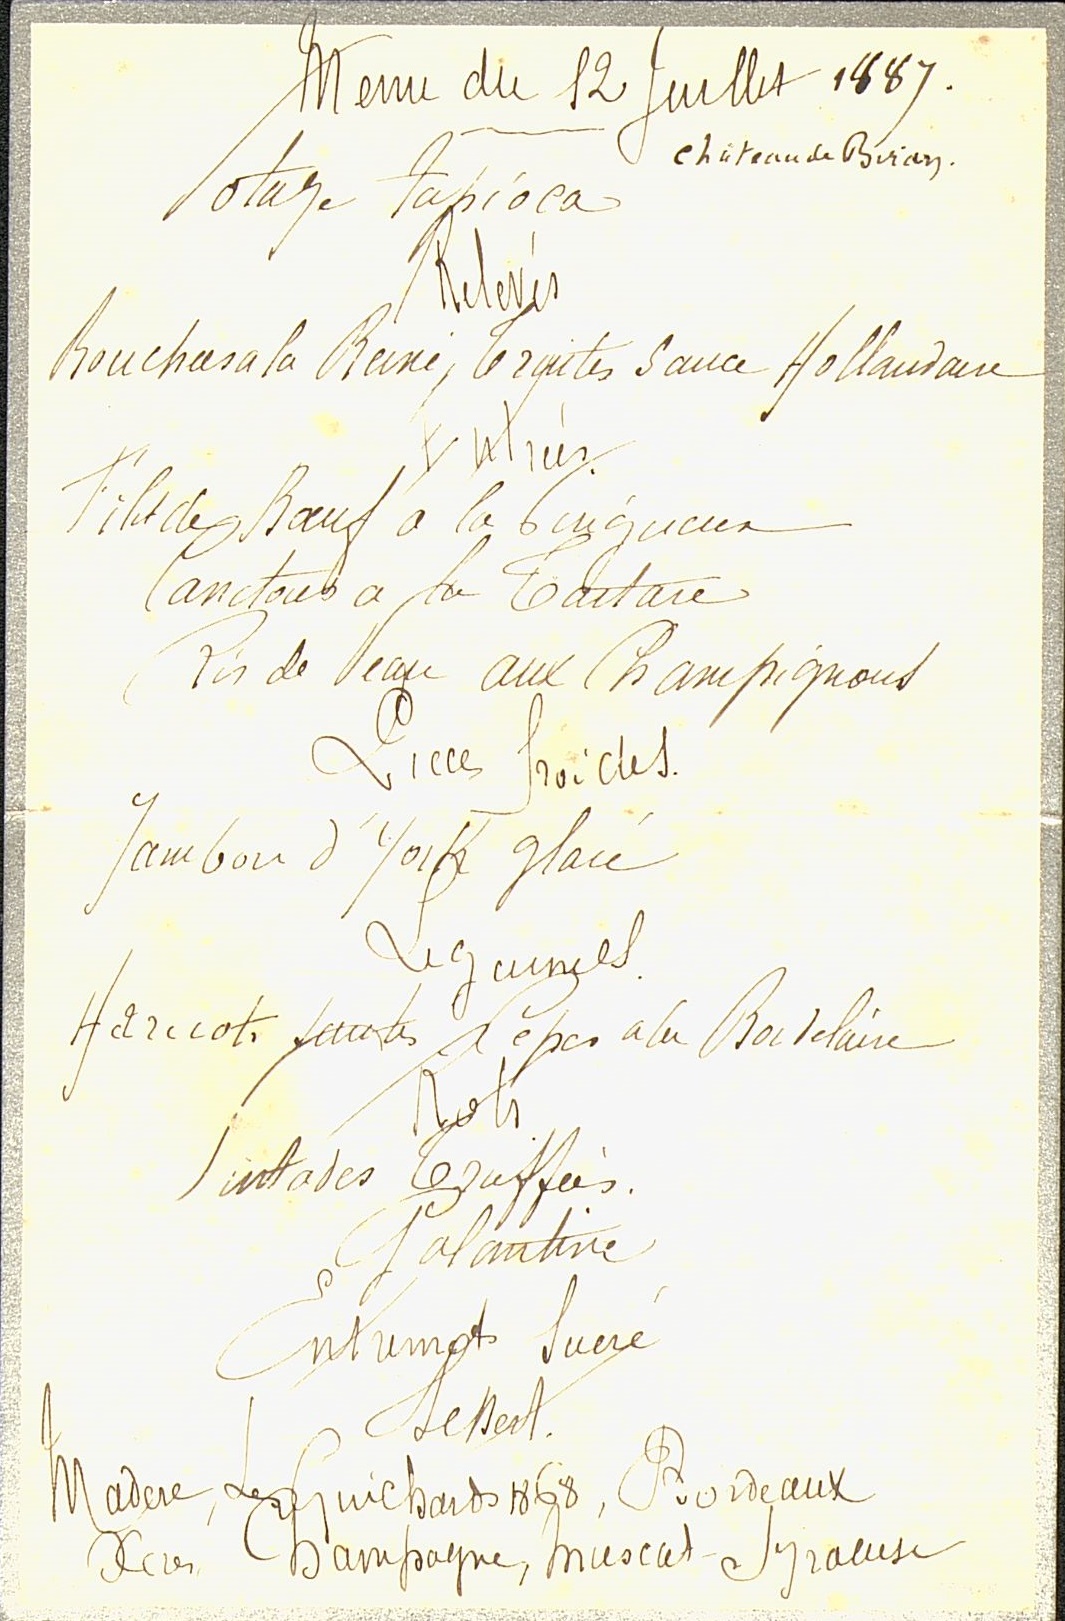 Menu du 12 Juillet 1887.
Château de
Potage Tapioca
Relevés
Bouchées a la Reine, Truites Sauce Hollandaise
Entrées.
Filet de Bœuf a la Périgueux
Canetons a la Tartare
Ris de Veau aux Champignons
Pieces froides.
Jambon d'York glacé
Legumes.
Haricots sautés Cêpes a la Bordelaise
Rots
Pintades Truffées.
Galantine
Entremets Sucré
Dessert.
Madere, Les Guichards 1868, Bordeaux
Xeres. Champagne, Muscat-Syracuse